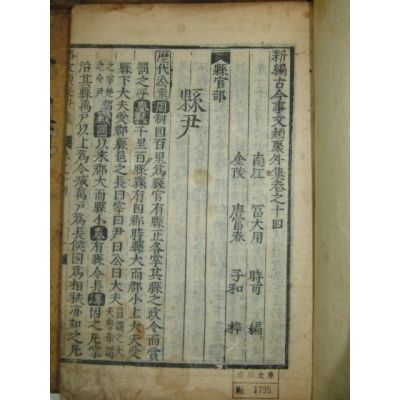 新編古今事文類聚外集卷之十四
南江 冨大用 時可 編
金陵 唐冨春 子和 梓
縣官部
縣尹
歷代沿革 周制四百里爲縣官有縣正各掌其縣之政令而賞
罰之 春秋千里百縣縣有四郡時縣大而郡小上大夫受
縣下大夫受郡縣邑之長曰宰曰尹曰公曰大夫
戰國以來郡大而縣小秦有縣令長漢因之凡掌
治其縣萬戶以上爲令減萬戶爲長侯國爲相秩亦如之凡
№ 1795